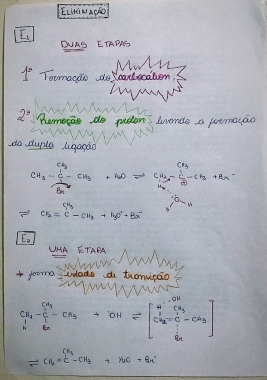 ELIMINAÇÃO
E₁
DUAS ETAPAS
1ª Formação do carbocátion
2ª Remoção do próton levando a formação
da dupla ligação
CH₃
CH₃ - C - CH₃ + H₂O ⇌ CH₂ - C - CH₃ + Br⁻
Br
H
O
H
CH₃
⇌ CH₂ = C - CH₃ + H₃O⁺ + Br⁻
E₂
UMA ETAPA
→ forma estado de transição
CH₃
CH₂ - C - CH₃ + ⁻OH ⇌ [CH₂ = C - CH₃]
H Br
H OH
CH₃
Br
CH₃
⇌ CH₂ = C - CH₃ + H₂O + Br⁻